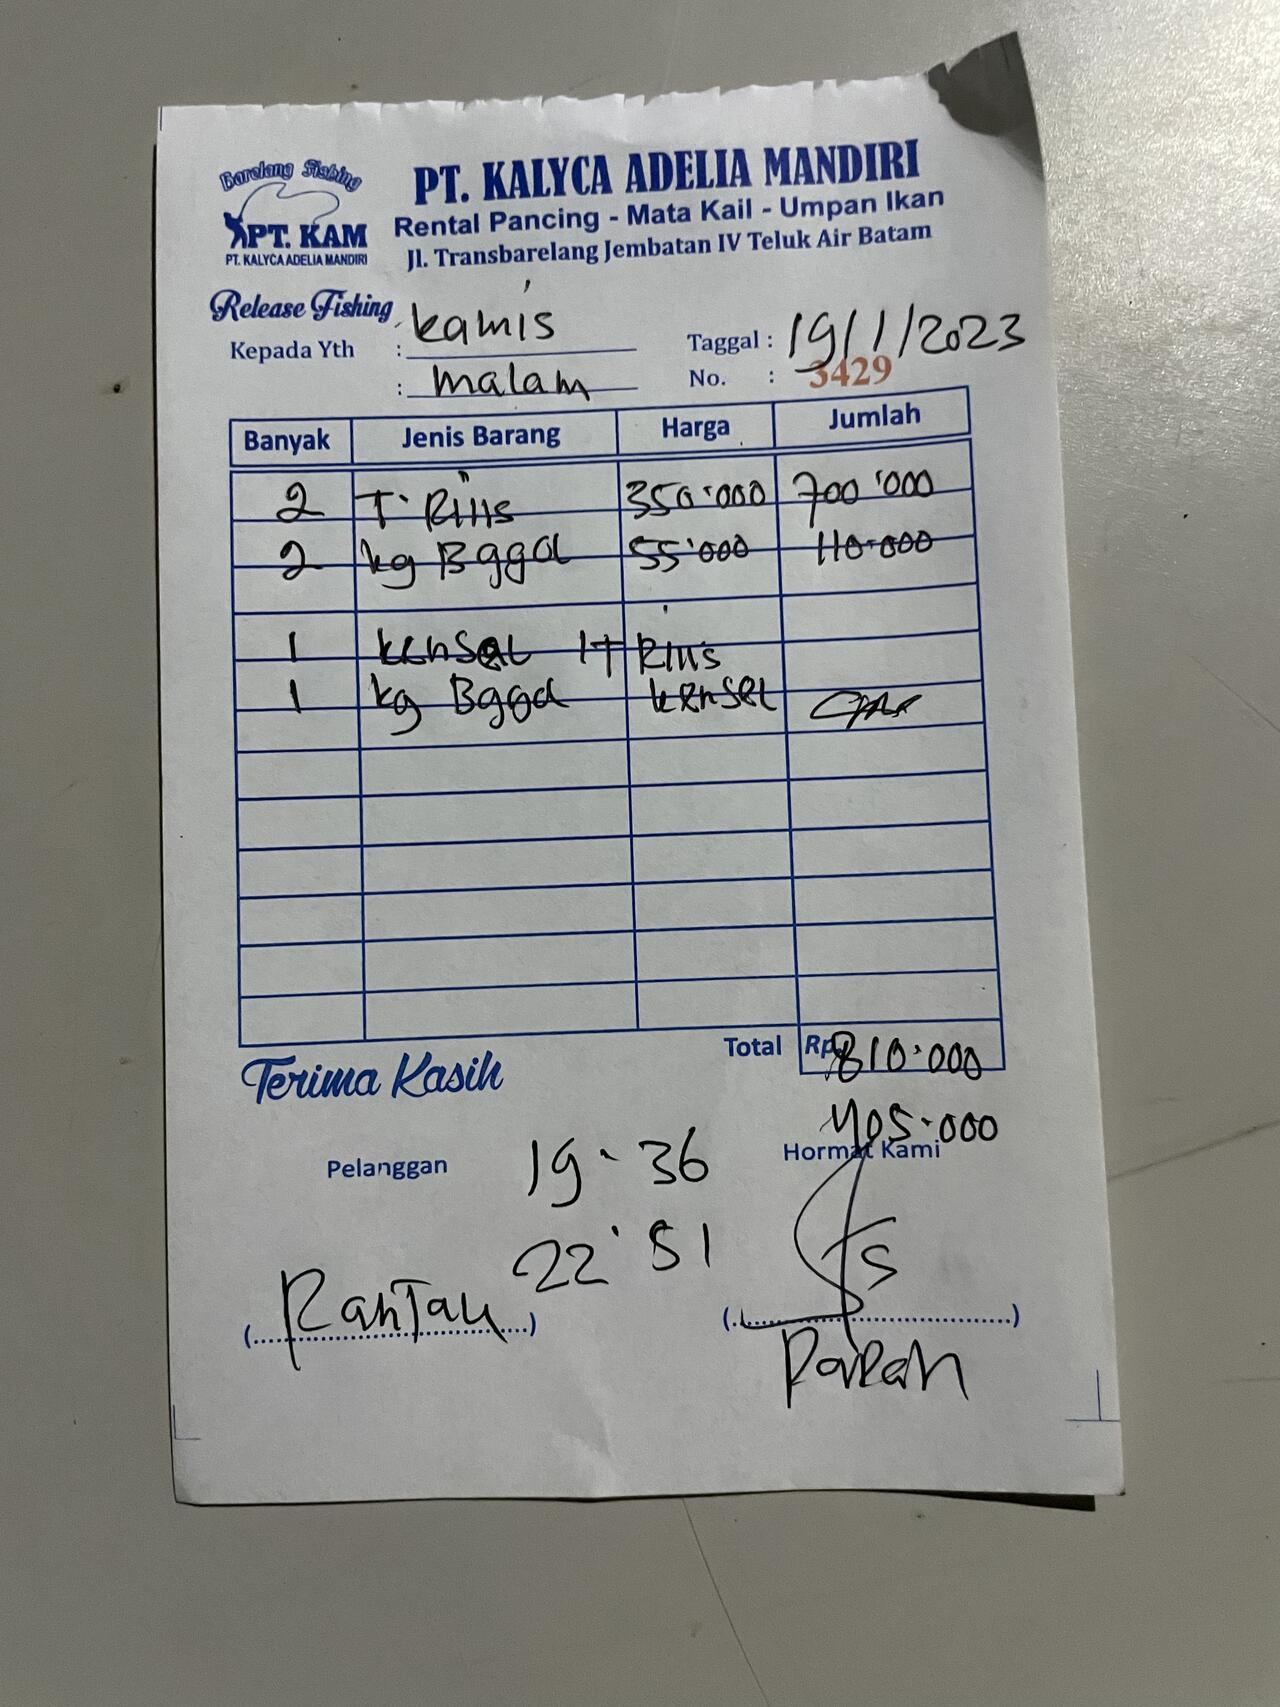 Barelang Fishing
PT. KAM
PT. KALYCA ADELIA MANDIRI
PT. KALYCA ADELIA MANDIRI
Rental Pancing - Mata Kail - Umpan Ikan
Jl. Transbarelang Jembatan IV Teluk Air Batam
Release Fishing
Kepada Yth : kamis
: malam
Taggal : 19/1/2023
No. : 3429
Banyak Jenis Barang Harga Jumlah
2 T. Rills 350.000 700.000
2 kg Bggd 55.000 110.000
1 kensel 1T Rills
1 kg Bggd kensel
Total Rp. 810.000
405.000
Terima Kasih
Pelanggan
Hormat Kami
19.36
22.51
(RanTau)
(..........)